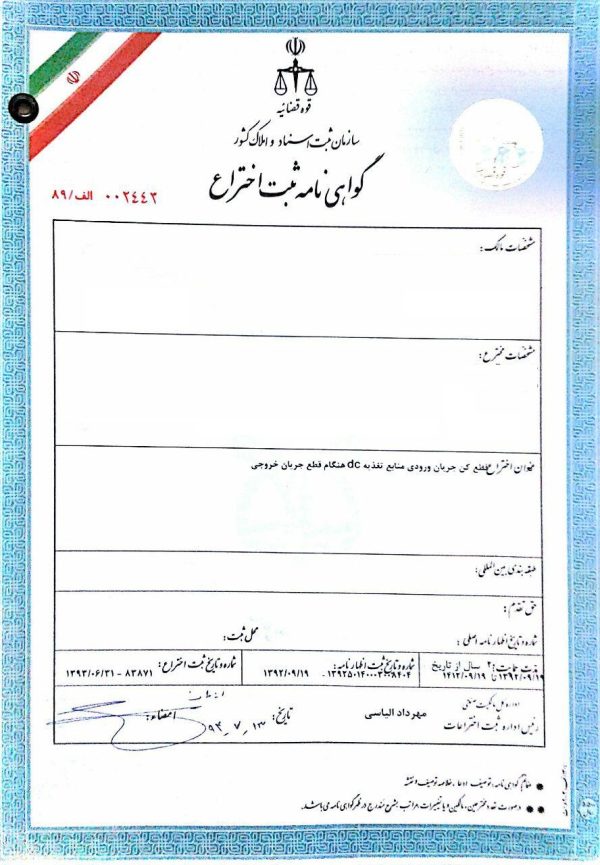 قوه قضائیه
سازمان ثبت اسناد و املاک کشور
گواهی نامه ثبت اختراع
۰۰۲۴۴۳ الف/۸۹
مشخصات مالک:
مشخصات مخترع:
عنوان اختراع: قطع کن جریان ورودی منابع تغذیه dc هنگام قطع جریان خروجی
طبقه بندی بین المللی:
حق تقدم:
شماره و تاریخ اظهارنامه اصلی:
محل ثبت:
مدت حمایت: ۲ سال از تاریخ
۱۳۹۲/۰۹/۱۹ تا ۱۴۱۲/۰۹/۱۹
شماره و تاریخ ثبت اظهارنامه:
۱۳۹۲/۰۹/۱۹
شماره و تاریخ ثبت اختراع:
۸۳۸۷۱ - ۱۳۹۳/۰۶/۳۱
اداره کل مالکیت صنعتی
رئیس اداره ثبت اختراعات
مهرداد الیاسی
تاریخ: ۹۳_۷_۱۳
امضاء:
ضمائم گواهی نامه: توصیف، ادعا، خلاصه توصیف و نقشه
مندرج در ظهر گواهی نامه می باشد.